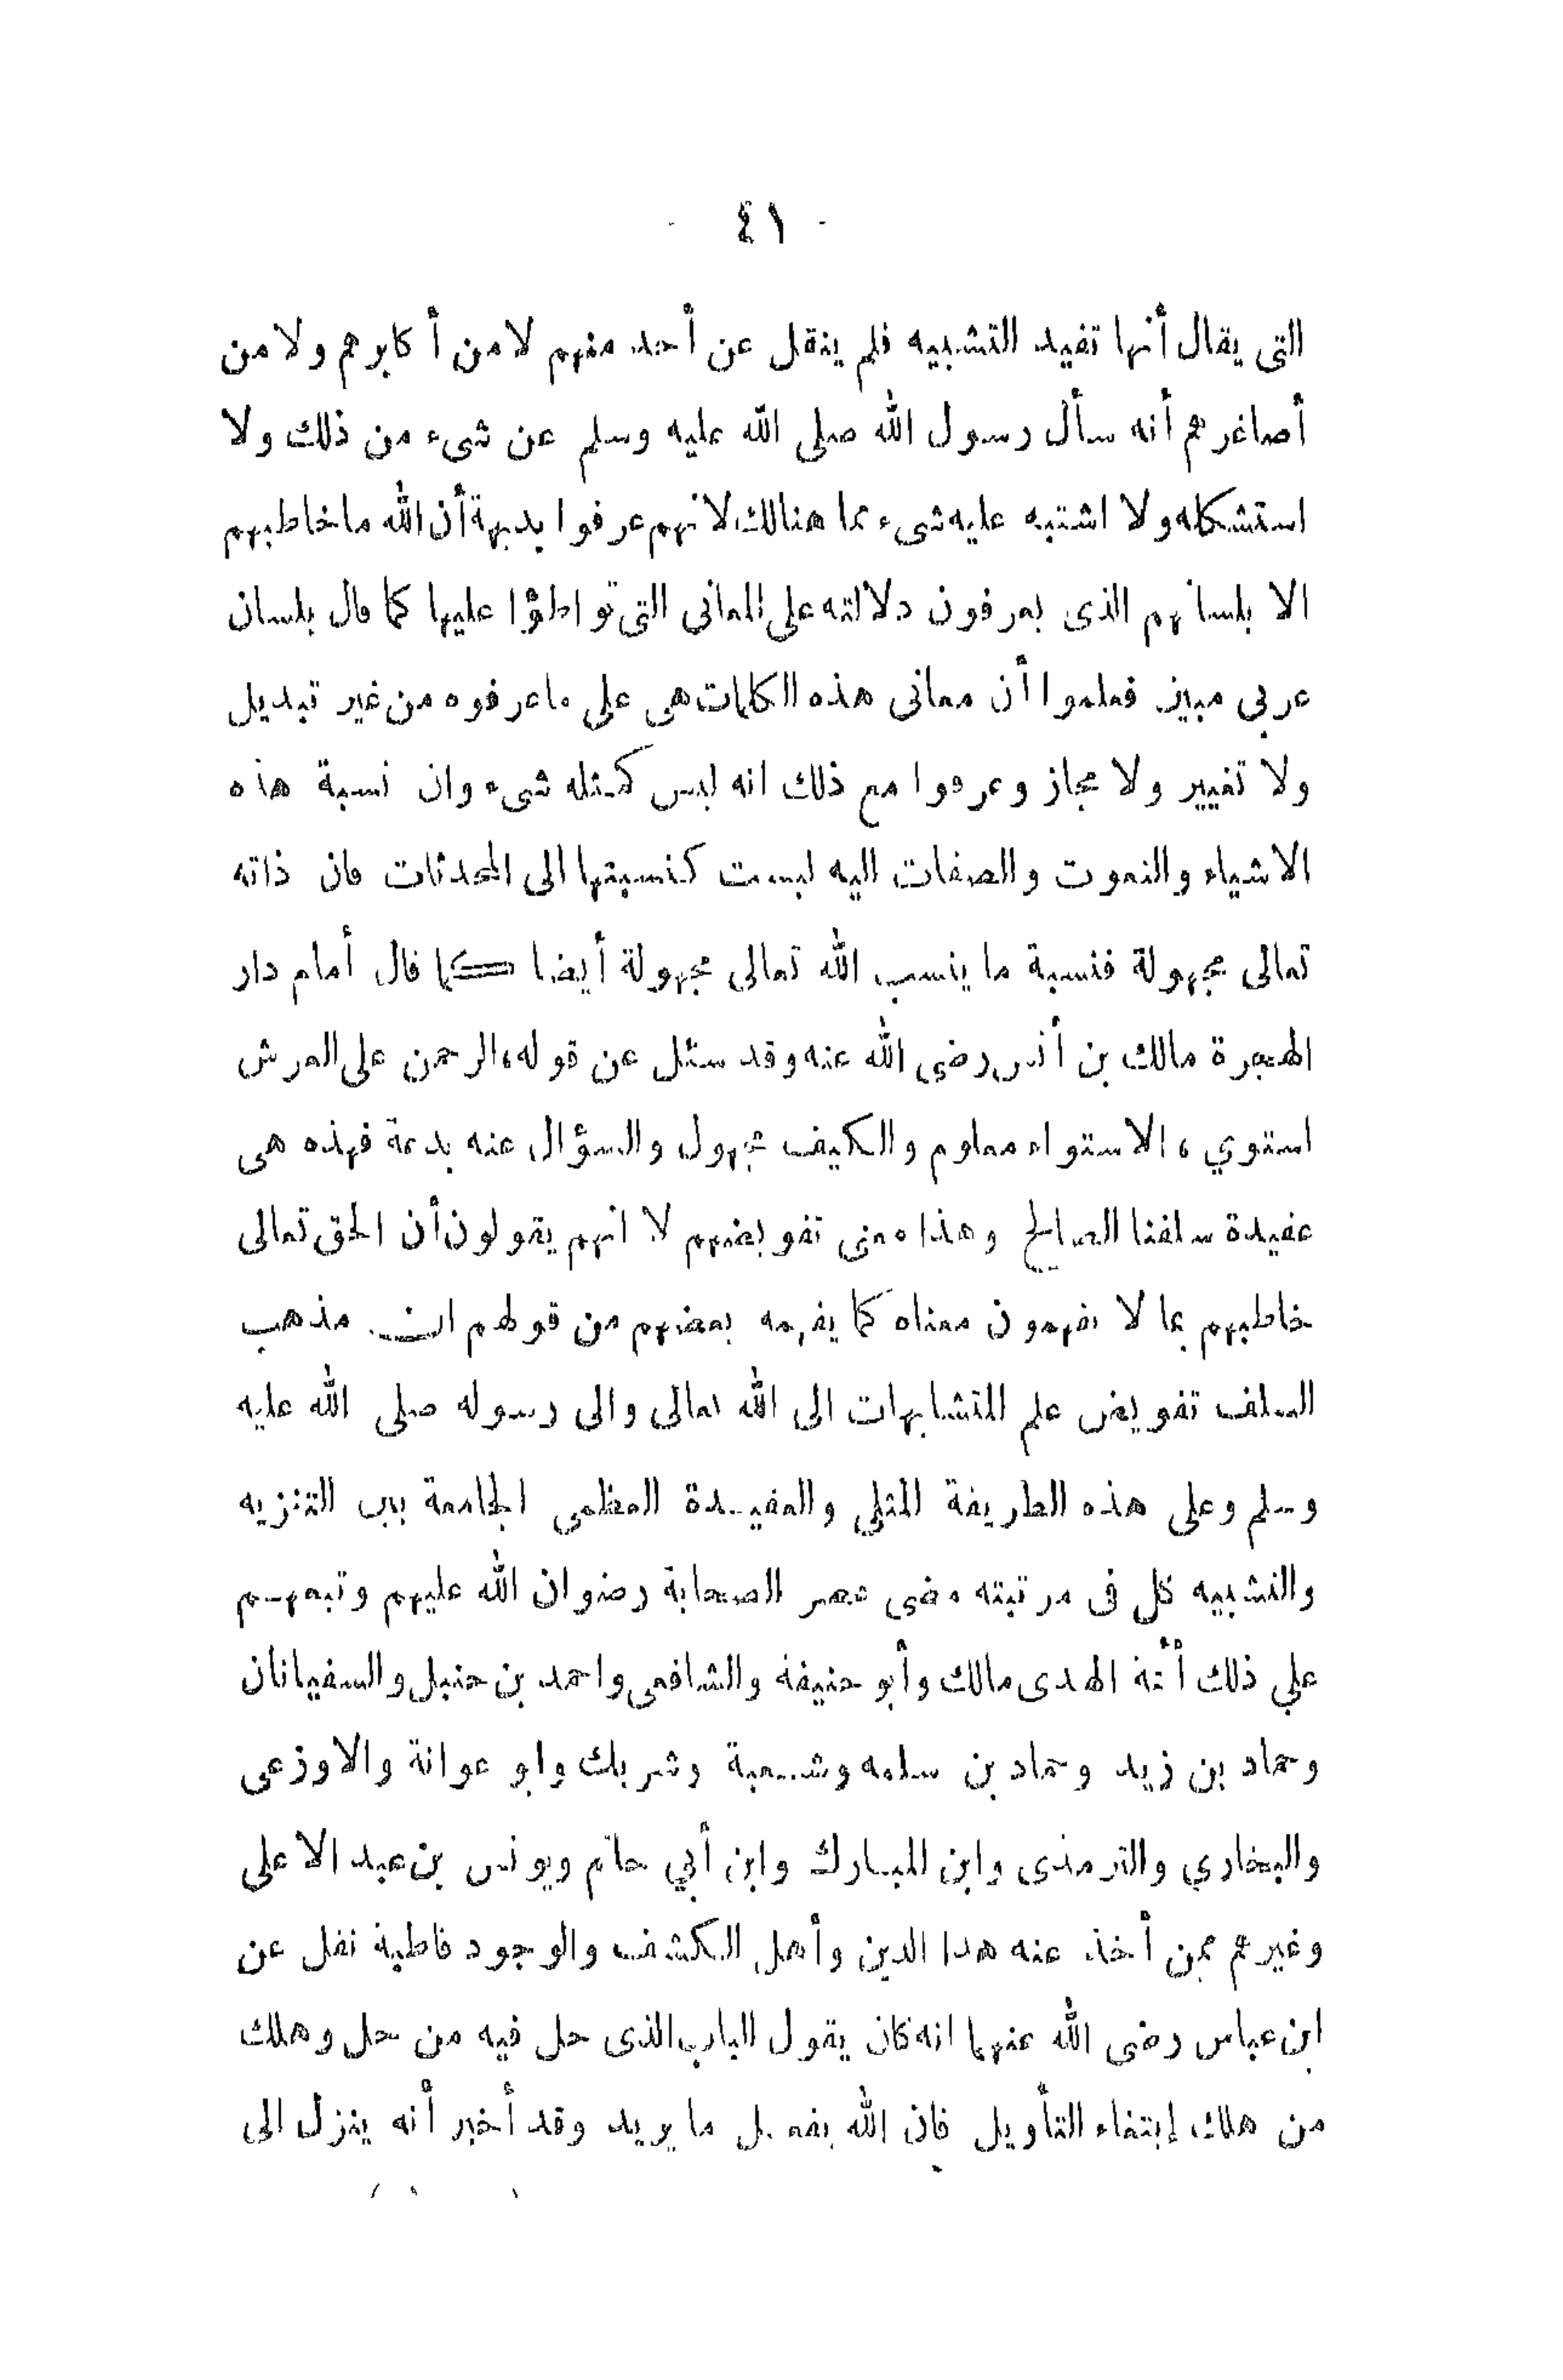 - ٤١ -
التى يقال أنها تفيد التشبيه فلم ينقل عن أحد منهم لا من أكابرهم ولا من
أصاغرهم أنه سأل رسول الله صلى الله عليه وسلم عن شىء من ذلك ولا
استشكله ولا اشتبه عليه شىء مما هنالك لانهم عرفوا بديهة أن الله ما خاطبهم
الا بلسانهم الذى يعرفون دلالته على المعانى التى تواطؤا عليها كما قال بلسان
عربي مبين فعلموا أن معانى هذه الكلمات هى على ما عرفوه من غير تبديل
ولا تغيير ولا مجاز وعرفوا مع ذلك انه ليس كمثله شىء وان نسبة هذه
الاشياء والنعوت والصفات اليه ليست كنسبتها الى المحدثات فان ذاته
تعالى مجهولة فنسبة ما ينسب الله تعالى مجهولة أيضا كما قال أمام دار
الهجرة مالك بن أنس رضي الله عنه وقد سئل عن قوله، الرحمن على العرش
استوي ، الاستواء معلوم والكيف مجهول والسؤال عنه بدعة فهذه هى
عقيدة سلفنا الصالح وهذا معنى تفويضهم لا انهم يقولون أن الحق تعالى
خاطبهم بما لا يفهمون معناه كما يفهمه بعضهم من قولهم ان مذهب
السلف تفويض علم المتشابهات الى الله تعالى والى رسوله صلى الله عليه
وسلم وعلى هذه الطريقة المثلى والعقيدة العظمى الجامعة بين التنزيه
والتشبيه كل فى مرتبته مضى عصر الصحابة رضوان الله عليهم وتبعهم
علي ذلك أئمة الهدى مالك وأبو حنيفة والشافعى واحمد بن حنبل والسفيانان
وحماد بن زيد وحماد بن سلمه وشعبة وشريك وابو عوانة والاوزعى
والبخاري والترمذى وابن المبارك وابن أبي حاتم ويونس بن عبد الاعلى
وغيرهم ممن أخذ عنه هذا الدين وأهل الكشف والوجود قاطبة نقل عن
ابن عباس رضى الله عنهما انه كان يقول الباب الذى حل فيه من حل وهلك
من هلك إبتغاء التأويل فان الله يفعل ما يريد وقد أخبر أنه ينزل الى